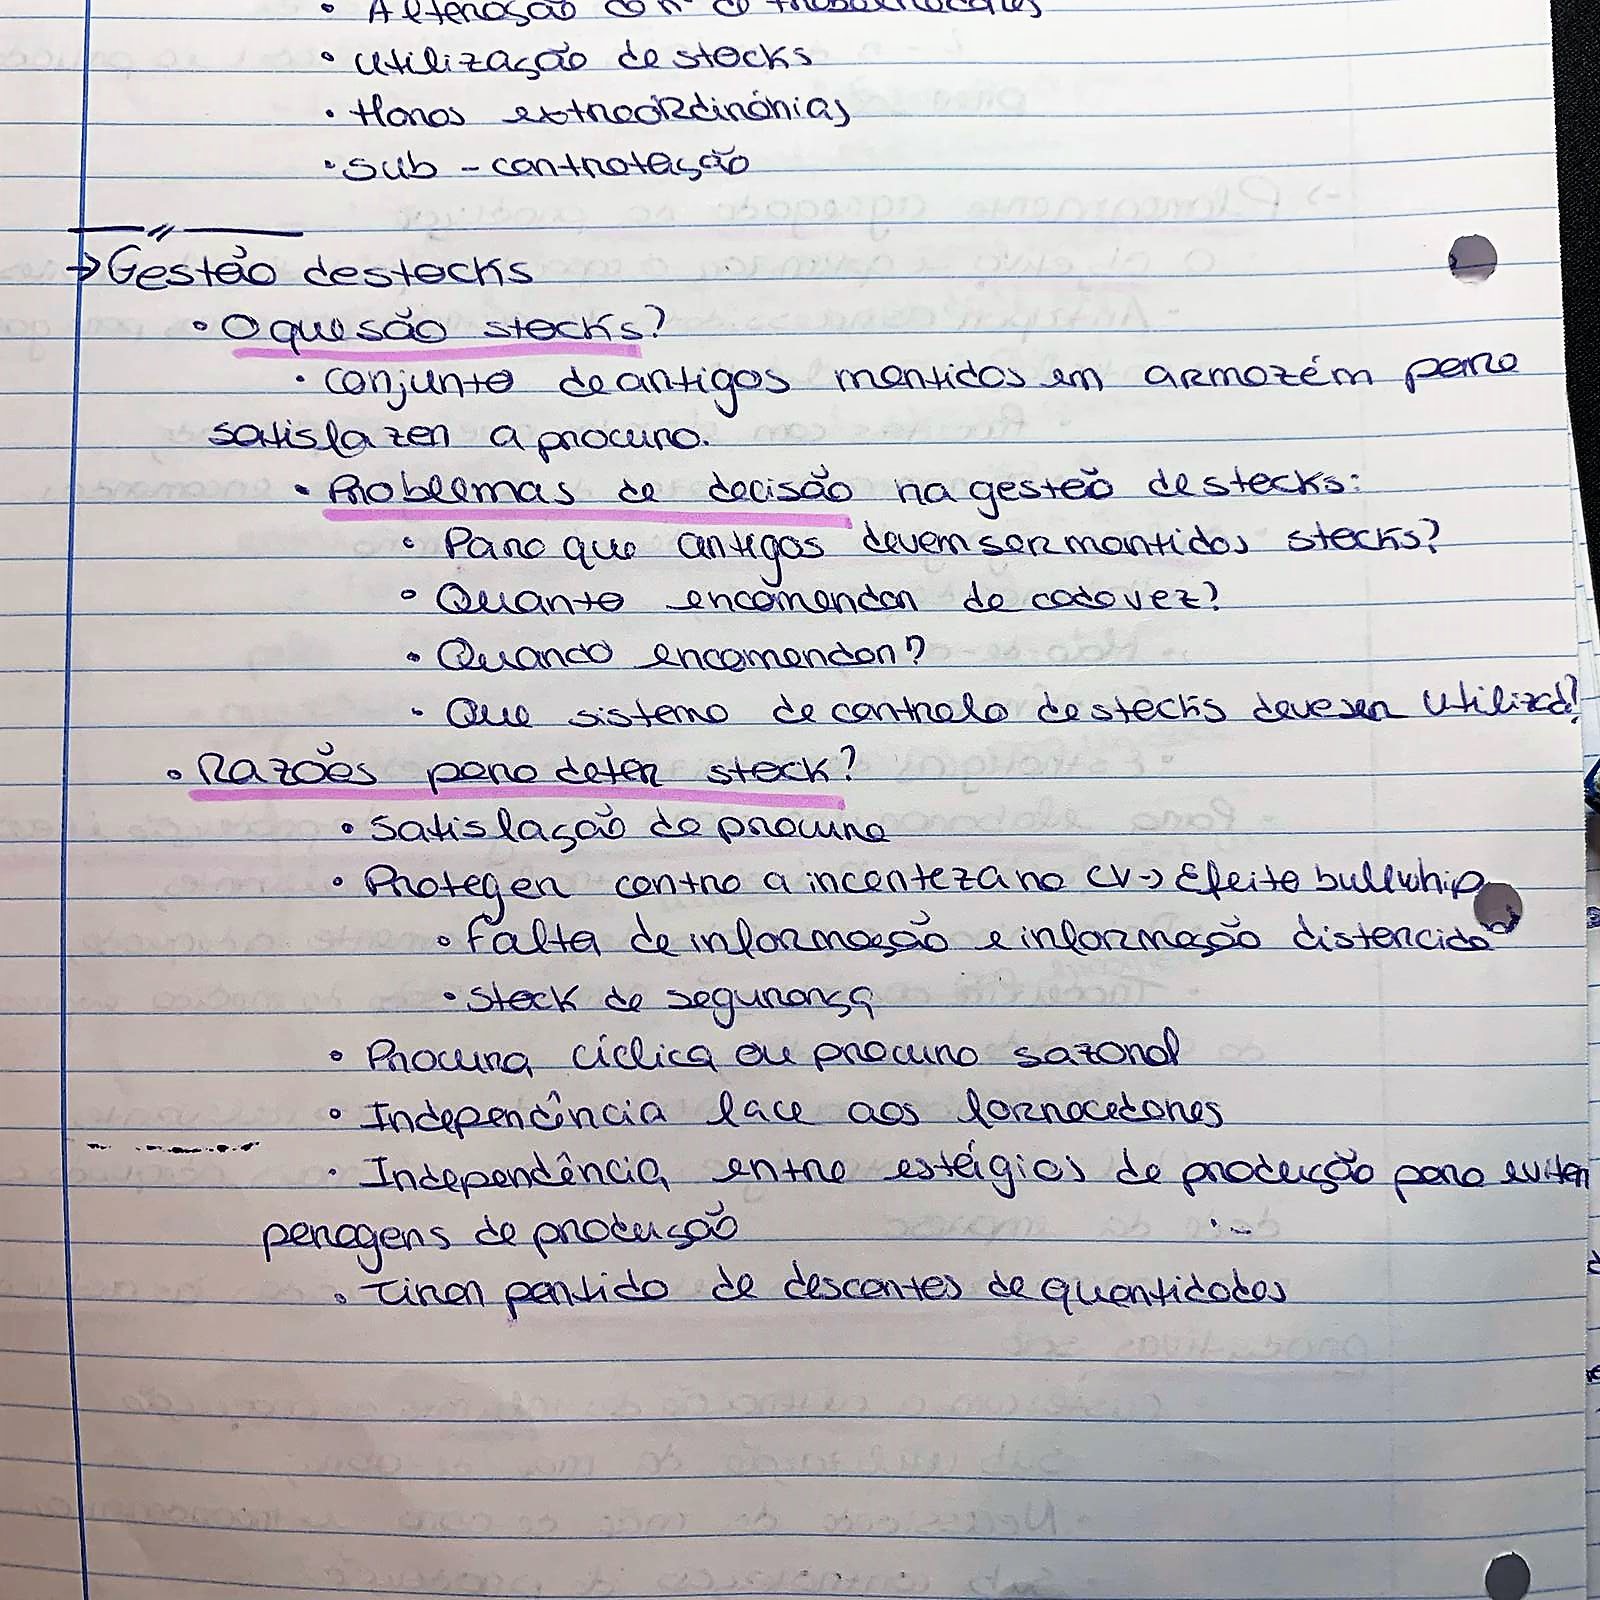 • Alteração do nº de trabalhadores
• Utilização de stocks
• Horas extraordinárias
• Sub-contratação
→ Gestão de stocks
• O que são stocks?
• conjunto de artigos mantidos em armazém para
satisfazer a procura.
• Problemas de decisão na gestão de stocks:
• Para que artigos devem ser mantidos stocks?
• Quanto encomendar de cada vez?
• Quando encomendar?
• Que sistema de controlo de stocks deve ser utilizad?
• Razões para deter stock?
• Satisfação da procura
• Proteger contra a incerteza na CV → Efeito bullwhip
• Falta de informação e informação distorcida
• Stock de segurança
• Procura cíclica ou procura sazonal
• Independência face aos fornecedores
• Independência entre estágios de produção para evitar
paragens de produção
• Tirar partido de descontos de quantidades